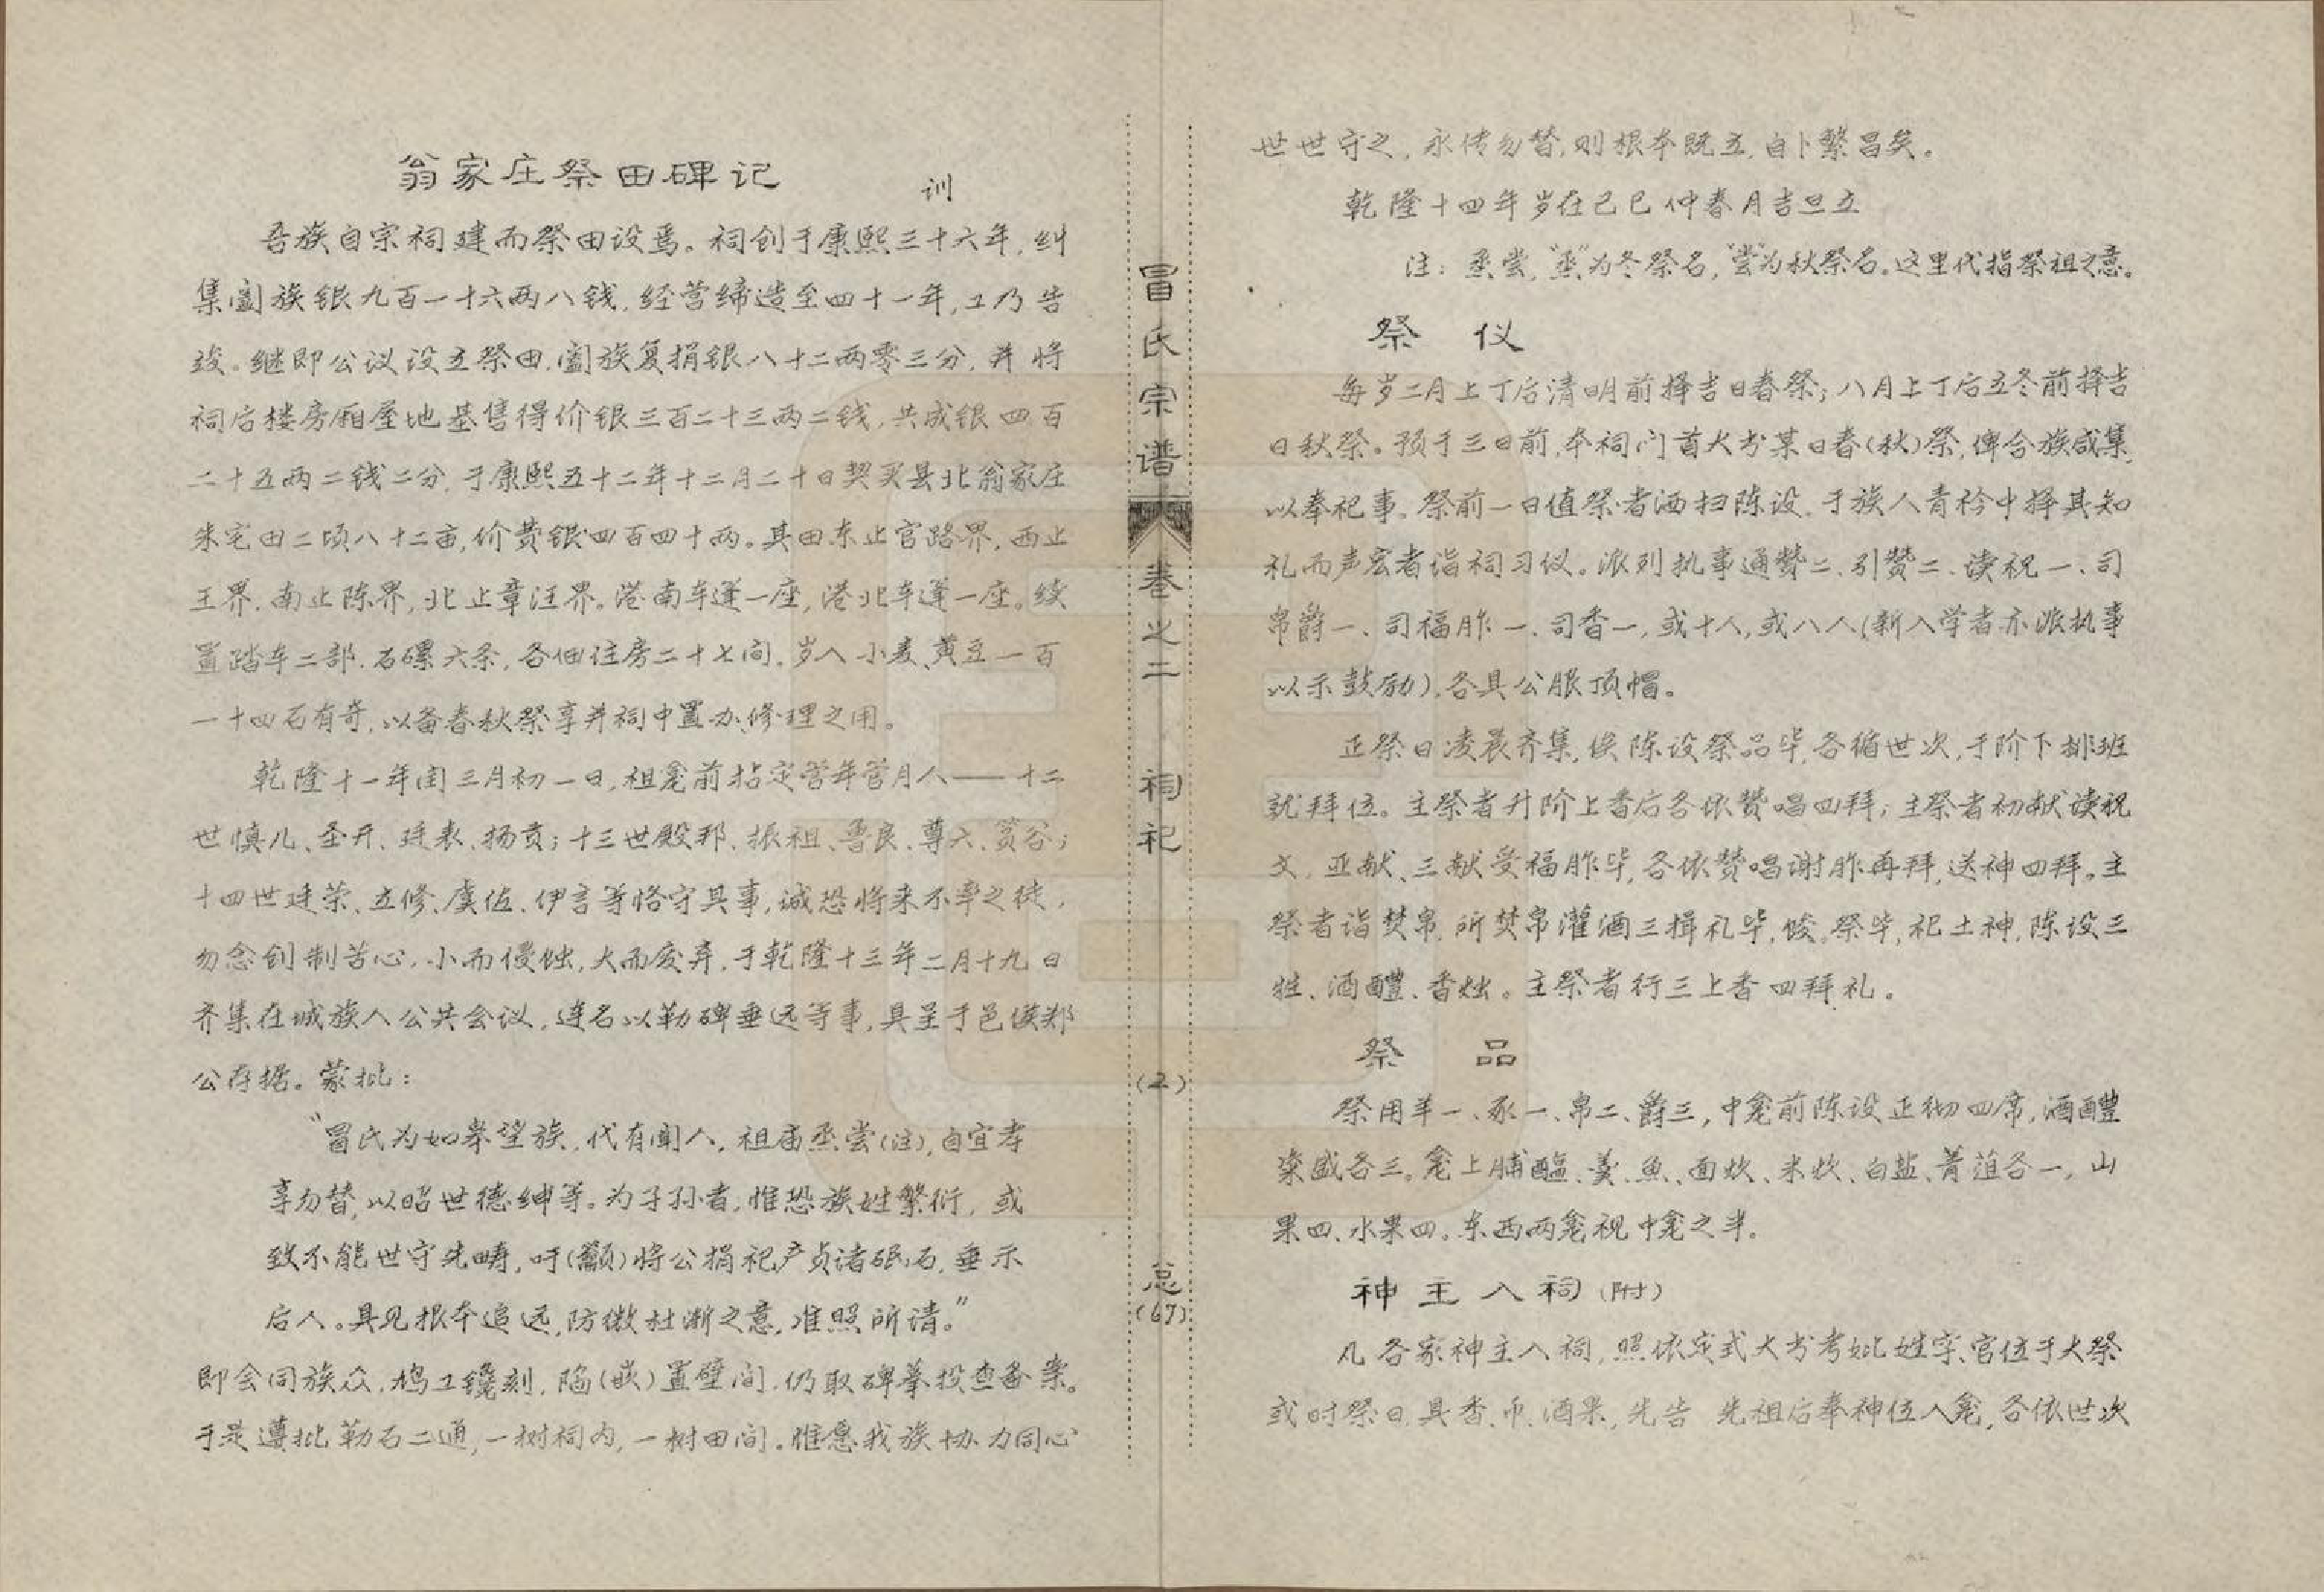 翁家庄祭田碑记
训
吾族自宗祠建而祭田设焉。祠创于康熙三十六年,纠
集阖族银九百一十六两八钱,经营缔造至四十一年,工乃告
竣。继即公议设立祭田,阖族复捐银八十二两零三分,并将
祠后楼房厢屋地基售得价银三百二十三两二钱,共成银四百
二十五两二钱二分,于康熙五十二年十二月二十日契买县北翁家庄
朱宅田二顷八十二亩,价费银四百四十两。其田东止官路界,西止
王界,南止陈界,北止章汪界。港南车篷一座,港北车篷一座。续
置踏车二部,石磙六条,各佃住房二十七间。岁入小麦、黄豆一百
一十四石有奇,以备春秋祭享并祠中置办、修理之用。
乾隆十一年闰三月初一日,祖龛前拈定管年管月人——十二
世慎儿、圣开、廷表、扬贡;十三世殿邦、振祖、鲁良、尊六、蒉谷;
十四世廷荣、立修、虞佐、伊言等恪守其事,诚恐将来不率之徒,
勿念创制苦心,小而侵蚀,大而废弃,于乾隆十三年二月十九日
齐集在城族人公共会议,连名以勒碑垂远等事,具呈于邑侯郑
公存据。蒙批:
“冒氏为如皋望族,代有闻人,祖庙烝尝(注),自宜孝
享勿替,以昭世德绅等。为子孙者,惟恐族姓繁衍,或
致不能世守先畴,吁(籲)将公捐祀产贞诸珉石,垂示
后人。具见报本追远,防微杜渐之意,准照所请。”
即会同族众,鸠工镌刻,陷(嵌)置壁间,仍取碑摹投查备案。
于是遵批勒石二通,一树祠内,一树田间。惟愿我族协力同心
冒氏宗谱
卷之二
祠祀
(2)
总
(67)
世世守之,永传勿替,则根本既立,自卜繁昌矣。
乾隆十四年岁在己巳仲春月吉旦立
注:烝尝,“烝”为冬祭名,“尝”为秋祭名。这里代指祭祖之意。
祭仪
每岁二月上丁后清明前择吉日春祭;八月上丁后立冬前择吉
日秋祭。预于三日前,本祠门首大书某日春(秋)祭,俾合族咸集,
以奉祀事。祭前一日值祭者洒扫陈设,于族人青衿中择其知
礼而声宏者诣祠习仪。派列执事通赞二、引赞二、读祝一、司
帛爵一、司福胙一、司香一,或十人,或八人(新入学者亦派执事
以示鼓励),各具公服顶帽。
正祭日凌晨齐集,俟陈设祭品毕,各循世次,于阶下排班
就拜位。主祭者升阶上香后各依赞唱四拜;主祭者初献读祝
文,亚献、三献受福胙毕,各依赞唱谢胙再拜,送神四拜。主
祭者诣焚帛,所焚帛灌酒三揖礼毕,馂。祭毕,祀土神,陈设三
牲、酒醴、香烛。主祭者行三上香四拜礼。
祭品
祭用羊一、豕一、帛二、爵三,中龛前陈设正彻四席,酒醴
粢盛各三。龛上脯醢、羹、鱼、面炊、米炊、白盐、菁菹各一,山
果四、水果四。东西两龛视中龛之半。
神主入祠(附)
凡各家神主入祠,照依定式大书考妣姓字、官位于大祭
或时祭日,具香、帛、酒果,先告 先祖后奉神位入龛,各依世次